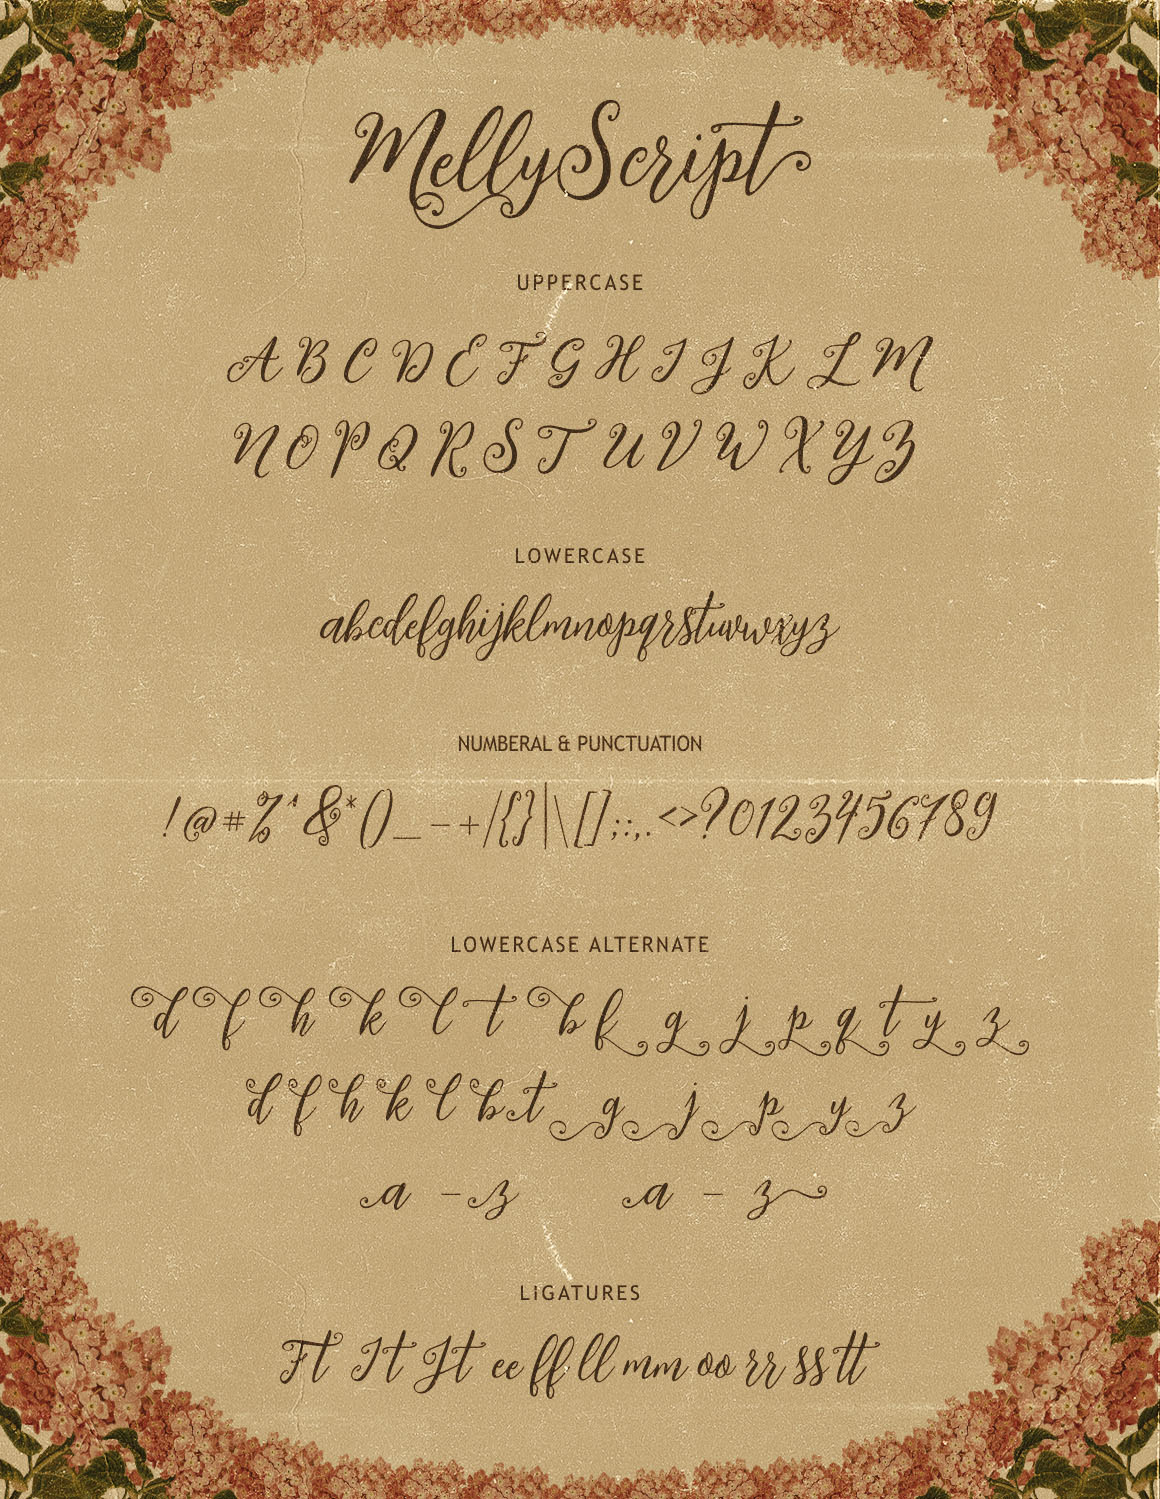 MellyScript
UPPERCASE
A B C D E F G H I J K L M
N O P Q R S T U V W X Y Z
LOWERCASE
abcdefghijklmnopqrstuvwxyz
NUMBERAL & PUNCTUATION
!@#%^&*()_-+/{}|\[];:,.<>?0123456789
LOWERCASE ALTERNATE
d f h k l t b f g j p q t y z
d f h k l b t g j p y z
a - z a - z
LIGATURES
Ft It Jt ee ff ll mm oo rr ss tt